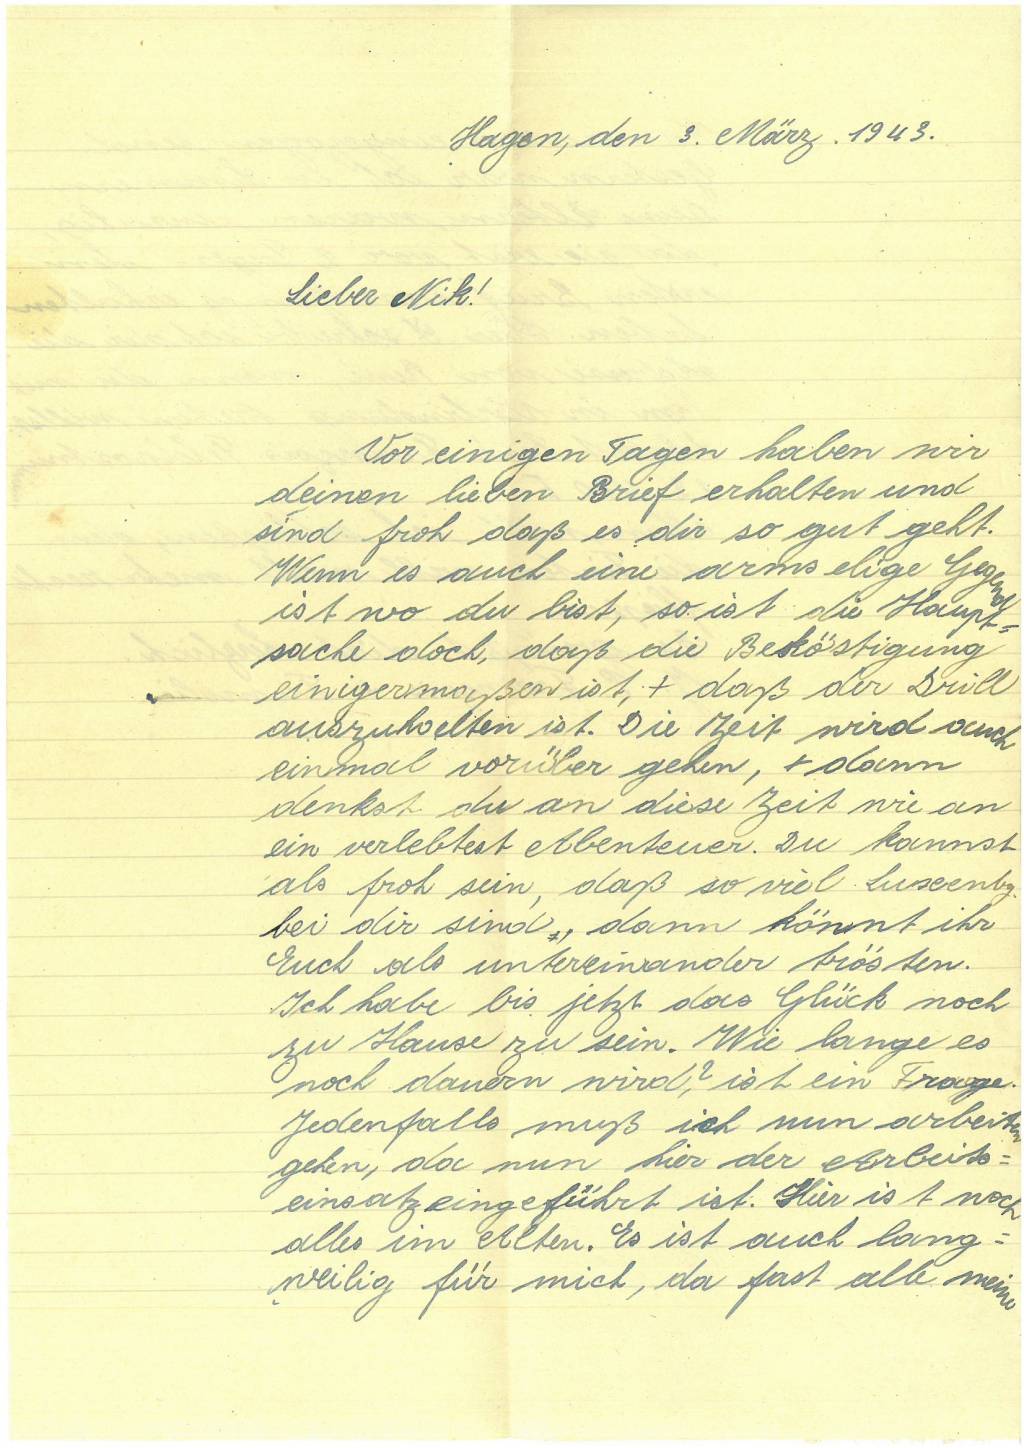 Hagen, den 3. März. 1943.
Lieber Nik!
Vor einigen Tagen haben wir
deinen lieben Brief erhalten und
sind froh daß es dir so gut geht.
Wenn es auch eine armselige Gegend
ist wo du bist, so ist die Haupt=
sache doch, daß die Beköstigung
einigermaßen ist, + daß der Drill
auszuhalten ist. Die Zeit wird auch
einmal vorüber gehen, + dann
denkst du an diese Zeit wie an
ein verlebtest Abenteuer. Du kannst
als froh sein, daß so viel Luxembg.
bei dir sind, dann könnt ihr
Euch als untereinander trösten.
Ich habe bis jetzt das Glück noch
zu Hause zu sein. Wie lange es
noch dauern wird,? ist ein Frage.
Jedenfalls muß ich nun arbeiten
gehen, da nun hier der Arbeits=
einsatz eingeführt ist. Hier ist noch
alles im Alten. Es ist auch lang=
weilig für mich, da fast alle meine